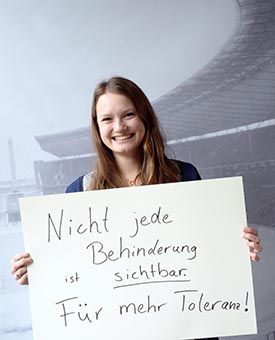 Nicht jede
Behinderung
ist sichtbar.
Für mehr Toleranz!